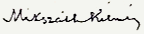 Mikszáth Kálmán